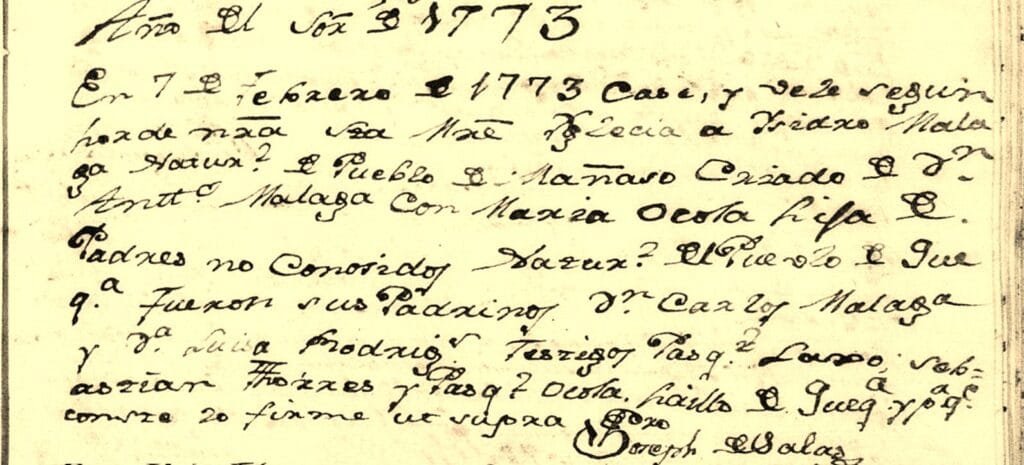 Año del Sōr de 1773
En 7 de Febrero de 1773 Case, y vele segun
horde nr̄a Sta Mr̄e Yglecia a Ysidro Mala
ga Natur.l de Pueblo de Mañaso Criado de Dn
Antt.o Malaga Con Maria Ocola hija de
Padres no Conosidos Natur.l del Pueblo de Que
q.a Fueron sus Padrinos Dn Carlos Malaga
y D.a Luisa Rodrig.s Testigos Pasq.l seb=
astian Thorres y Pasq.l Ocola de Queq.a y pa q.e
conste lo firme ut supra Pedro
Joseph de Salas